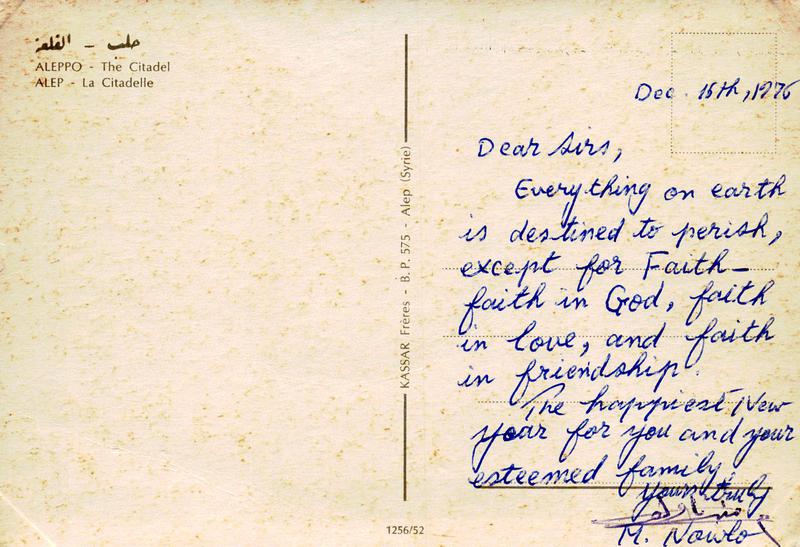 حلب - القلعة
ALEPPO - The Citadel
ALEP - La Citadelle
KASSAR Frères - B. P. 575 - Alep (Syrie)
1256/52
Dec. 15th, 1976
Dear Sirs,
Everything on earth
is destined to perish,
except for Faith-
faith in God, faith
in love, and faith
in friendship.
The happiest New
year for you and your
esteemed family,
yours truly
M. Nowlo